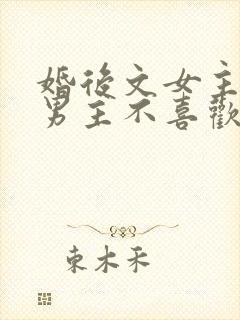 婚後文女主
男主不喜歡
束木禾